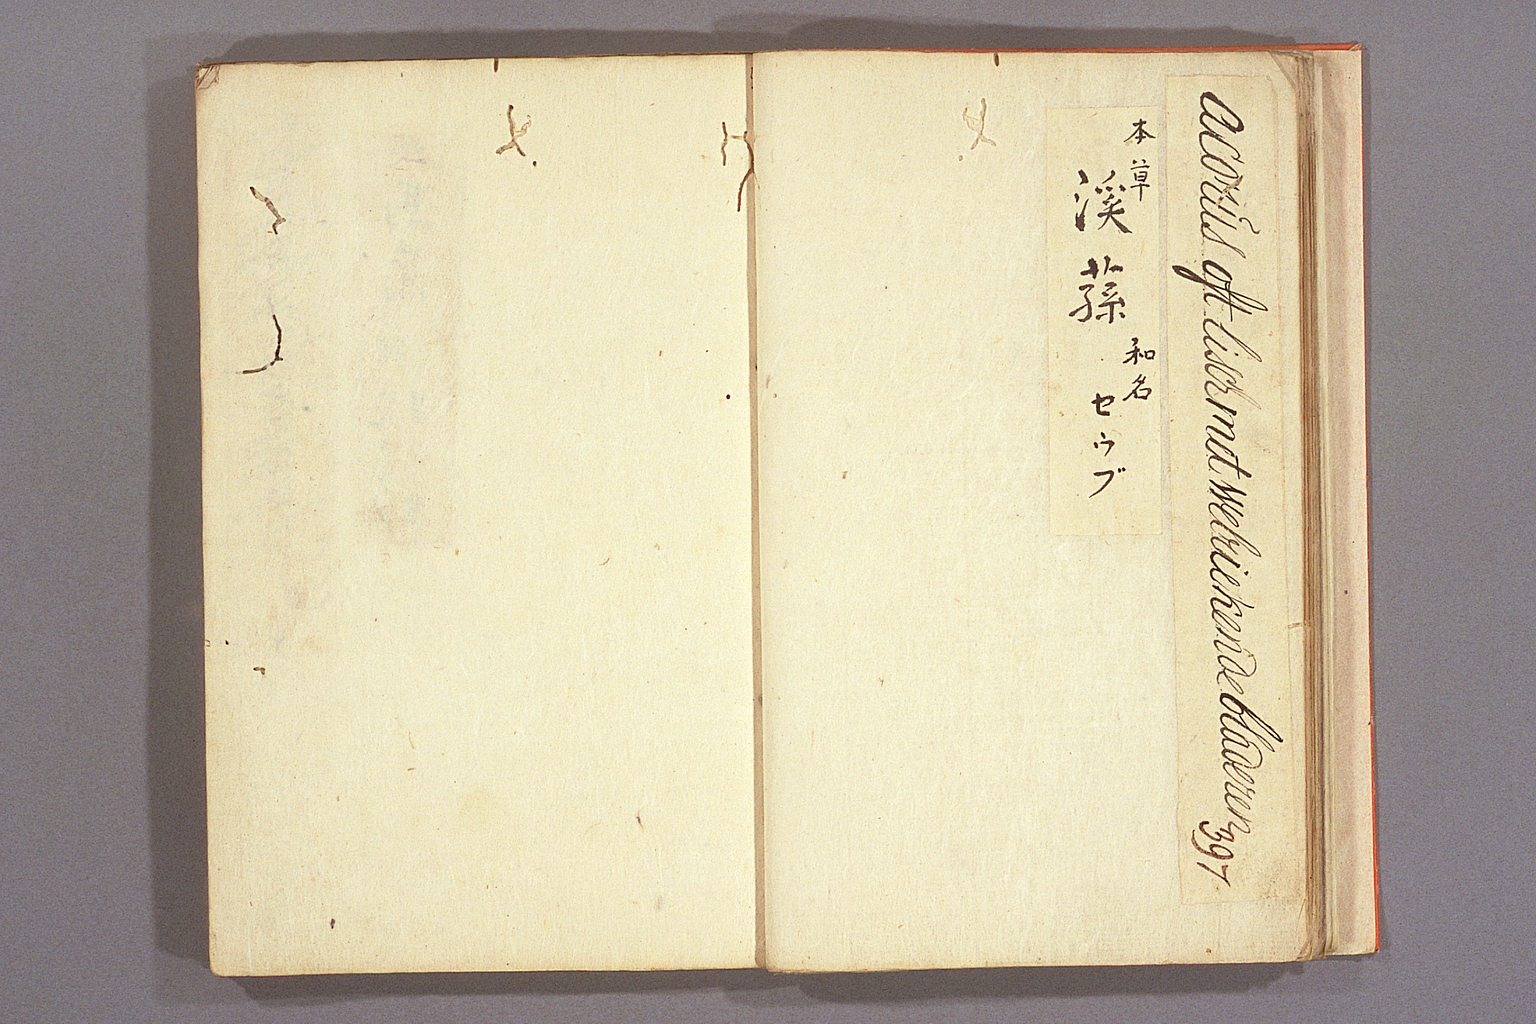 acoriis oft lisch met welriekende bladeren 397
本草
溪蓀
和名
セウブ